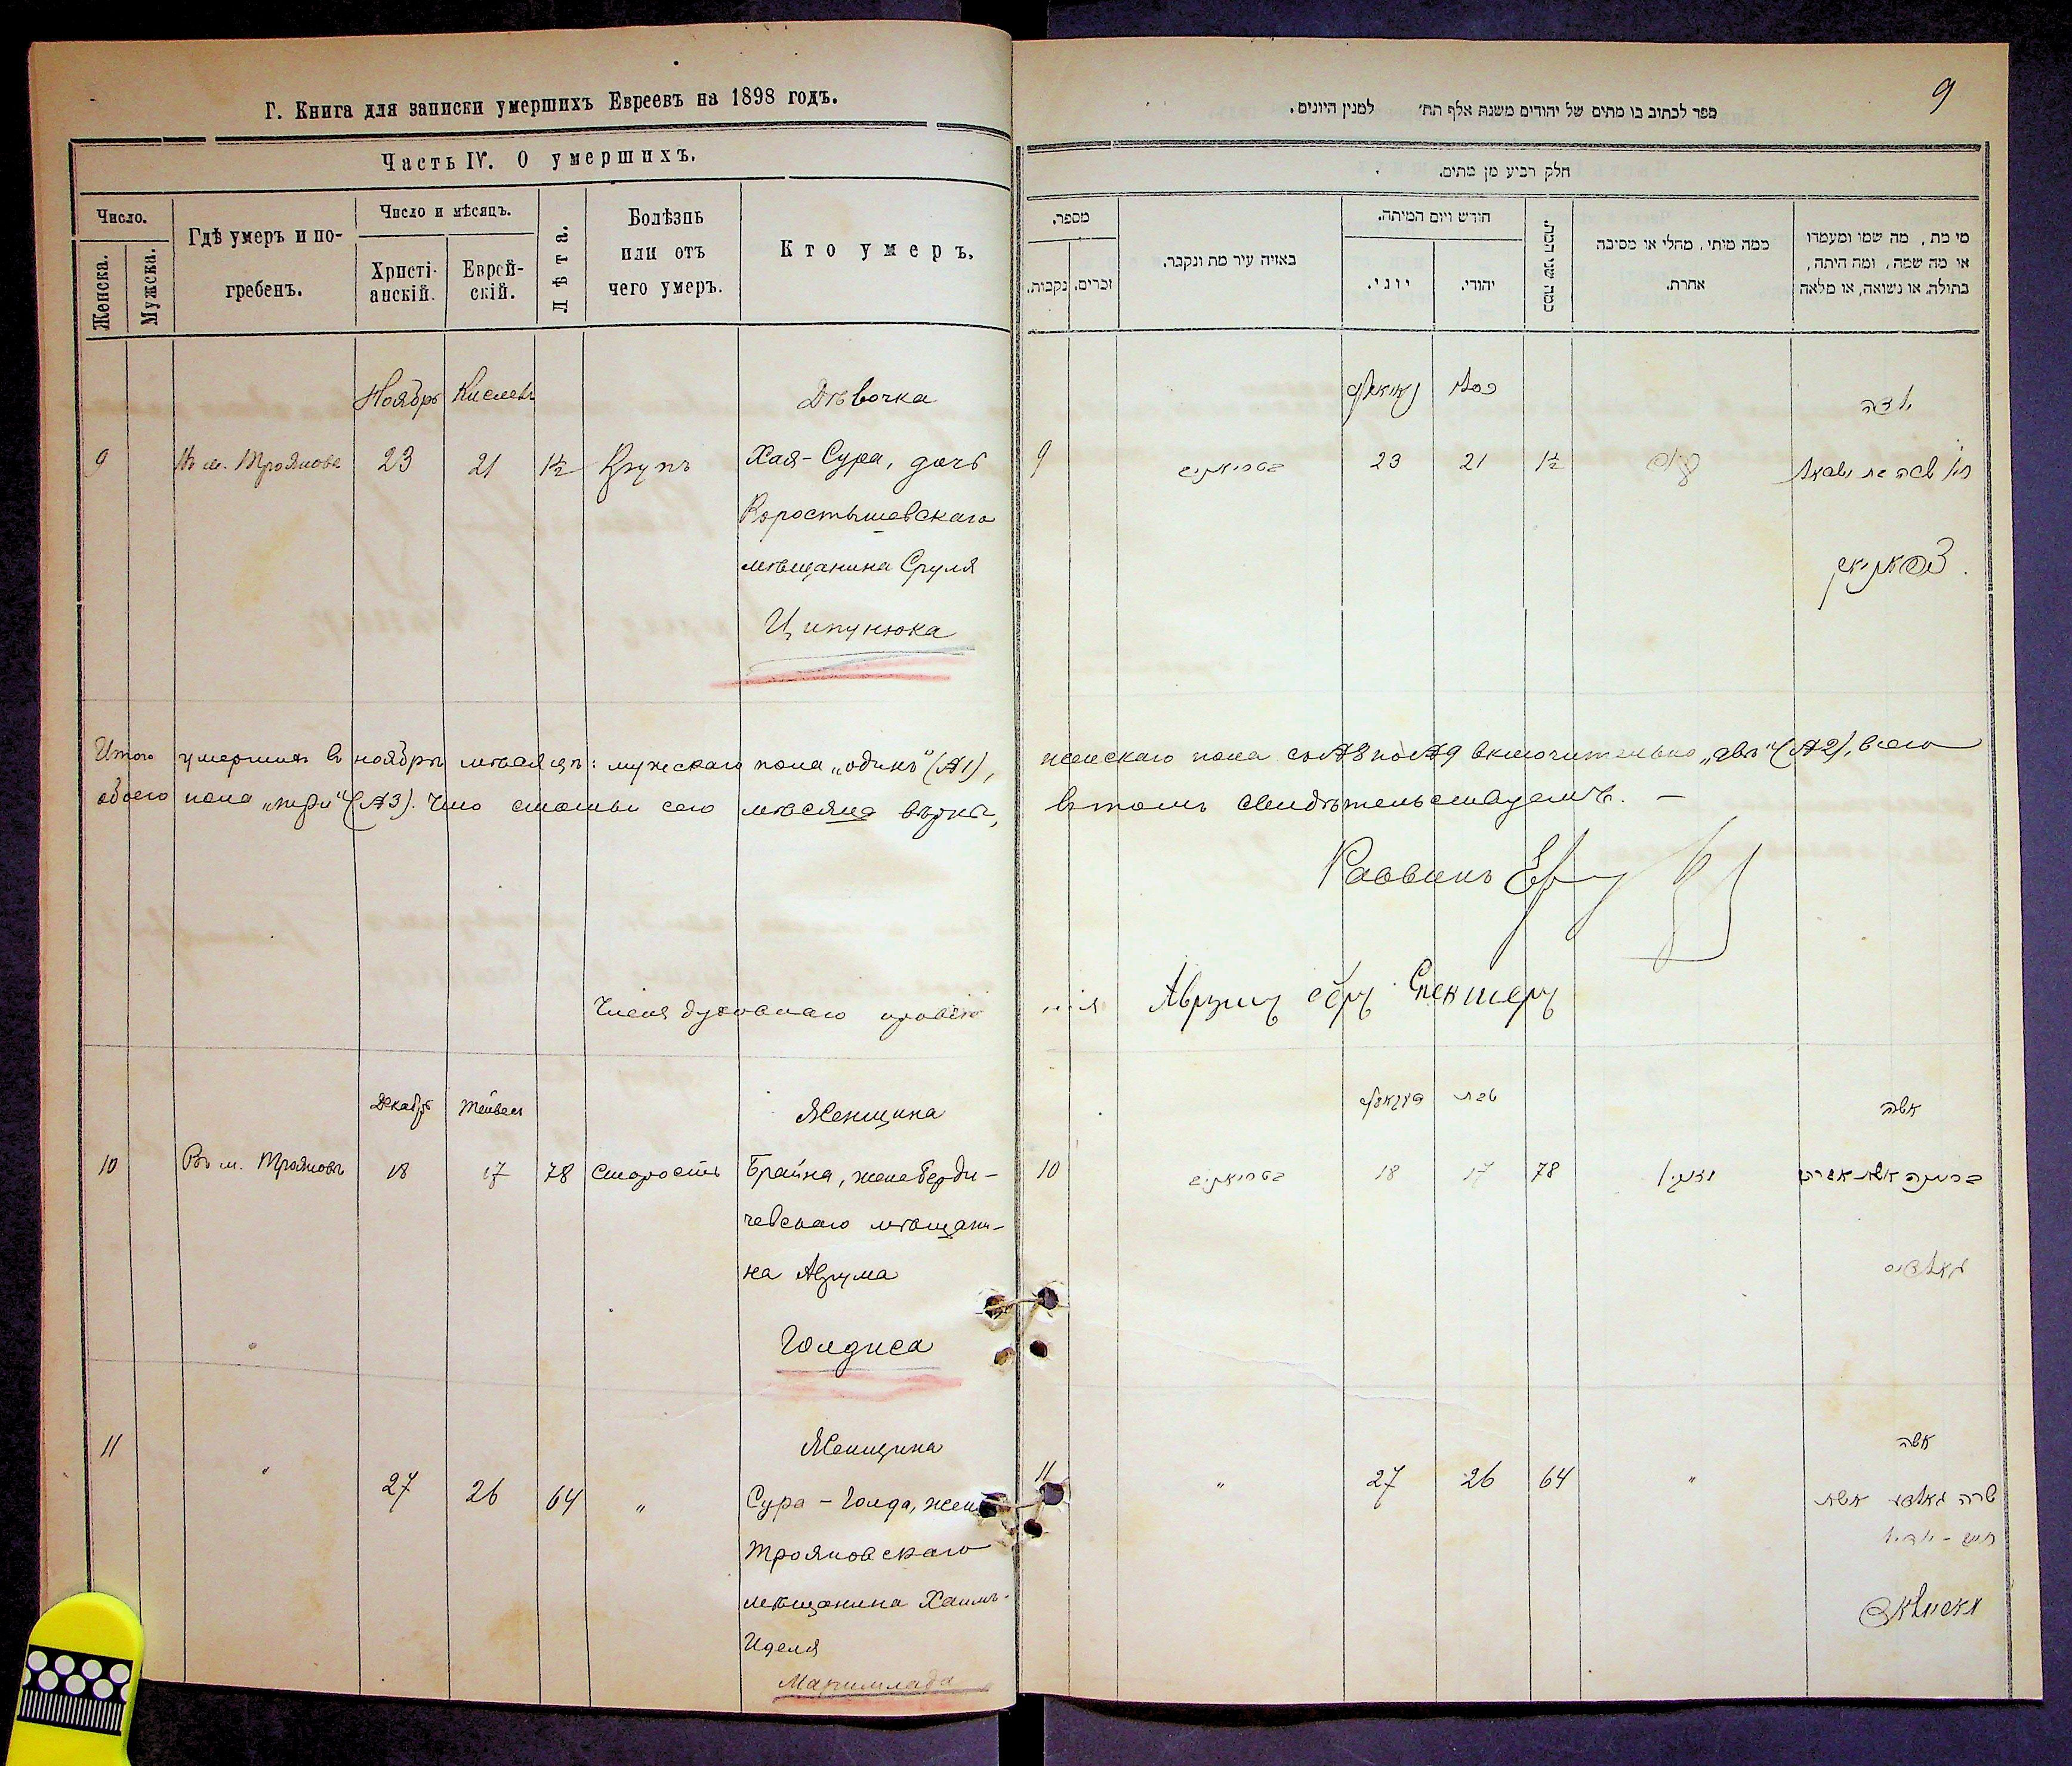 Г. Книга для записки умершихъ Евреевъ на 1898 годъ.
Часть IV. О умершихъ.
Число.
Женска.
Мужска.
Гдѣ умеръ и по-
гребенъ.
Число и мѣсяцъ.
Христі-
анскій.
Еврей-
скій.
Лѣта.
Болѣзнь
или отъ
чего умеръ.
Кто умеръ.
Ноябрь Кислевъ Дѣвочка
9 Въ м. Трояновѣ 23 21 1½ Крупъ Хая-Сура, дочь
Коростышевскаго
мѣщанина Сруля
Ципунюка
Итого умершихъ въ ноябрѣ мѣсяцѣ: мужескаго пола „одинъ“ (№1),
обоего пола „три“ (№3). Что статьи сего мѣсяца вѣрны,
Члены духовнаго правле
Декабрь Тейвесъ Женщина
10 Въ м. Трояновѣ 18 17 78 Старость Брайна, жена Берди-
чевскаго мѣщани-
на Аврума
Голдиса
11 Женщина
" 27 26 64 " Сура-Голда, жена
Трояновскаго
мѣщанина Хаимъ-
Иделя
Мармилада
9
ספר לכתוב בו מתים של יהודים משנת אלף תת׳ למנין היונים.
חלק רביע מן מתים.
מספר.
נקבות.
זכרים.
באיזה עיר מת ונקבר.
חודש ויום המיתה.
יוני.
יהודי.
כמה שני המת.
כמה מיתי, מחלי או מסיבה
אחרת.
מי מת, מה שמו ומעמדו
או מה שמה, ומה היתה,
בתולה, או נשואה, או מלאה
נאיאבר כסלו ילדה
9 בטריאניב 23 21 1½ קרופ חי׳ שרה בת ישראל
ציפאניוק
женскаго пола съ №8 по №9 включительно „двѣ“ (№2), всего
въ томъ свидѣтельствуемъ. —
Раввинъ
нія
10 דעקאבר טבת אשה
בטריאניב 18 17 78 זקנה בריינה אשת אברהם
גאלדיס
11 אשה
" 27 26 64 " שרה גאלדע אשת
חיים-יודיל